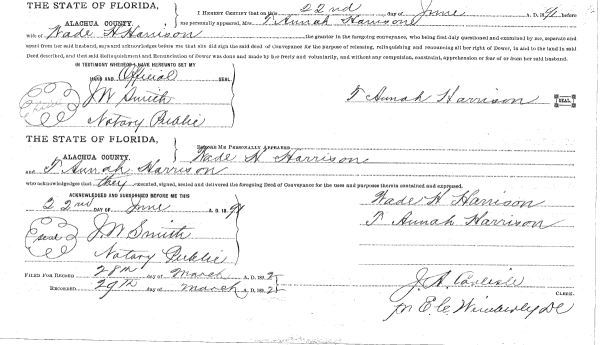 THE STATE OF FLORIDA, I HEREBY CERTIFY that on this 22nd day of June A. D. 1891 before
ALACHUA COUNTY. me personally appeared, Mrs. T Annah Harrison
wife of Wade H Harrison the grantor in the foregoing conveyance, who being first duly questioned and examined by me, separate and
apart from her said husband, says and acknowledges before me that she did sign the said deed of Conveyance for the purpose of releasing, relinquishing and renouncing all her right of Dower, in and to the land in said
Deed described, and that said Relinquishment and Renunciation of Dower was done and made by her freely and voluntarily, and without any compulsion, constraint, apprehension or fear of or from her said husband.
IN TESTIMONY WHEREOF I HAVE HEREUNTO SET MY
HAND AND Official SEAL
Seal J. W Smith T Annah Harrison SEAL.
Notary Public
THE STATE OF FLORIDA, BEFORE ME PERSONALLY APPEARED
ALACHUA COUNTY. Wade H. Harrison
and T Annah Harrison
who acknowledges that they executed, signed, sealed and delivered the foregoing Deed of Conveyance for the uses and purposes therein contained and expressed.
ACKNOWLEDGED AND SUBSCRIBED BEFORE ME THIS Wade H Harrison
22nd DAY OF June A. D. 1891 T Annah Harrison
Seal J. W Smith
Notary Public
FILED FOR RECORD 28th day of March A. D. 1892 J. A. Carlisle
RECORDED 29th day of March A. D. 1892 CLERK.
pr E. C. Wimberly DC